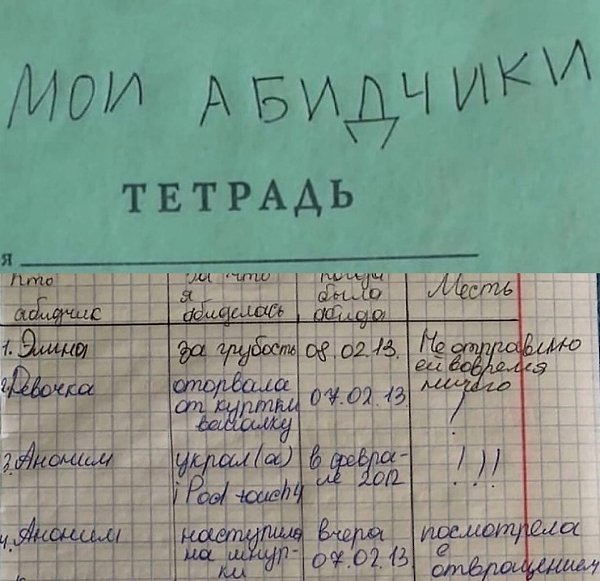 МОИ АБИДЧИКИ
ТЕТРАДЬ
я
Кто абидчик
За что я абиделась
Когда была абида
Месть
1. Элина
за грубость
08.02.13.
Не отправлю ей вовремя ничего
2. Девочка
оторвала от куртки
07.02.13
!
3. Аноним
украл(а) iPod touch 4
в феврале 2012
!!!
4. Аноним
наступила на шнурки
вчера 07.02.13
посмотрела с отвращением